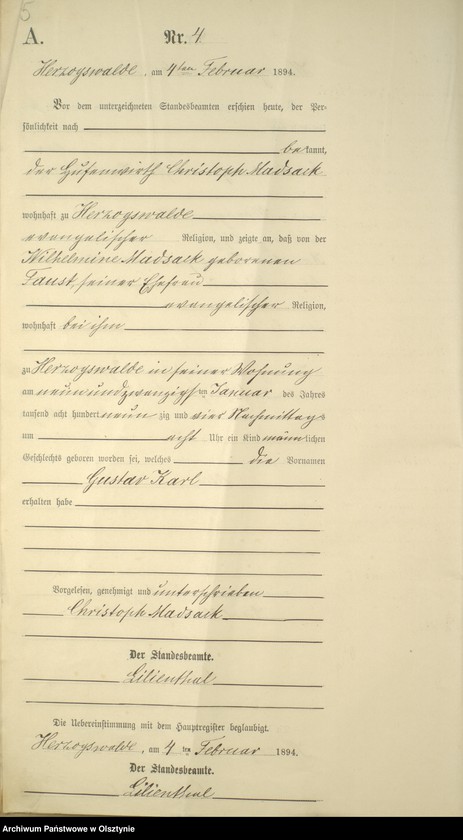 5
A. Nr. 4
Herzogswalde, am 4ten Februar 1894.
Vor dem unterzeichneten Standesbeamten erschien heute, der Per-
sönlichkeit nach
bekannt,
der Hufenwirth Christoph Madsack
wohnhaft zu Herzogswalde
evangelischer Religion, und zeigte an, daß von der
Wilhelmine Madsack geborenen
Faust, seiner Ehefrau
evangelischer Religion,
wohnhaft bei ihm
zu Herzogswalde in seiner Wohnung
am neunundzwanzigsten Januar des Jahres
tausend acht hundert neun zig und vier Nachmittags
um acht Uhr ein Kind männlichen
Geschlechts geboren worden sei, welches die Vornamen
Gustav Karl
erhalten habe
Vorgelesen, genehmigt und unterschrieben
Christoph Madsack
Der Standesbeamte.
Lilienthal
Die Uebereinstimmung mit dem Hauptregister beglaubigt.
Herzogswalde, am 4 ten Februar 1894.
Der Standesbeamte.
Lilienthal
Archiwum Państwowe w Olsztynie